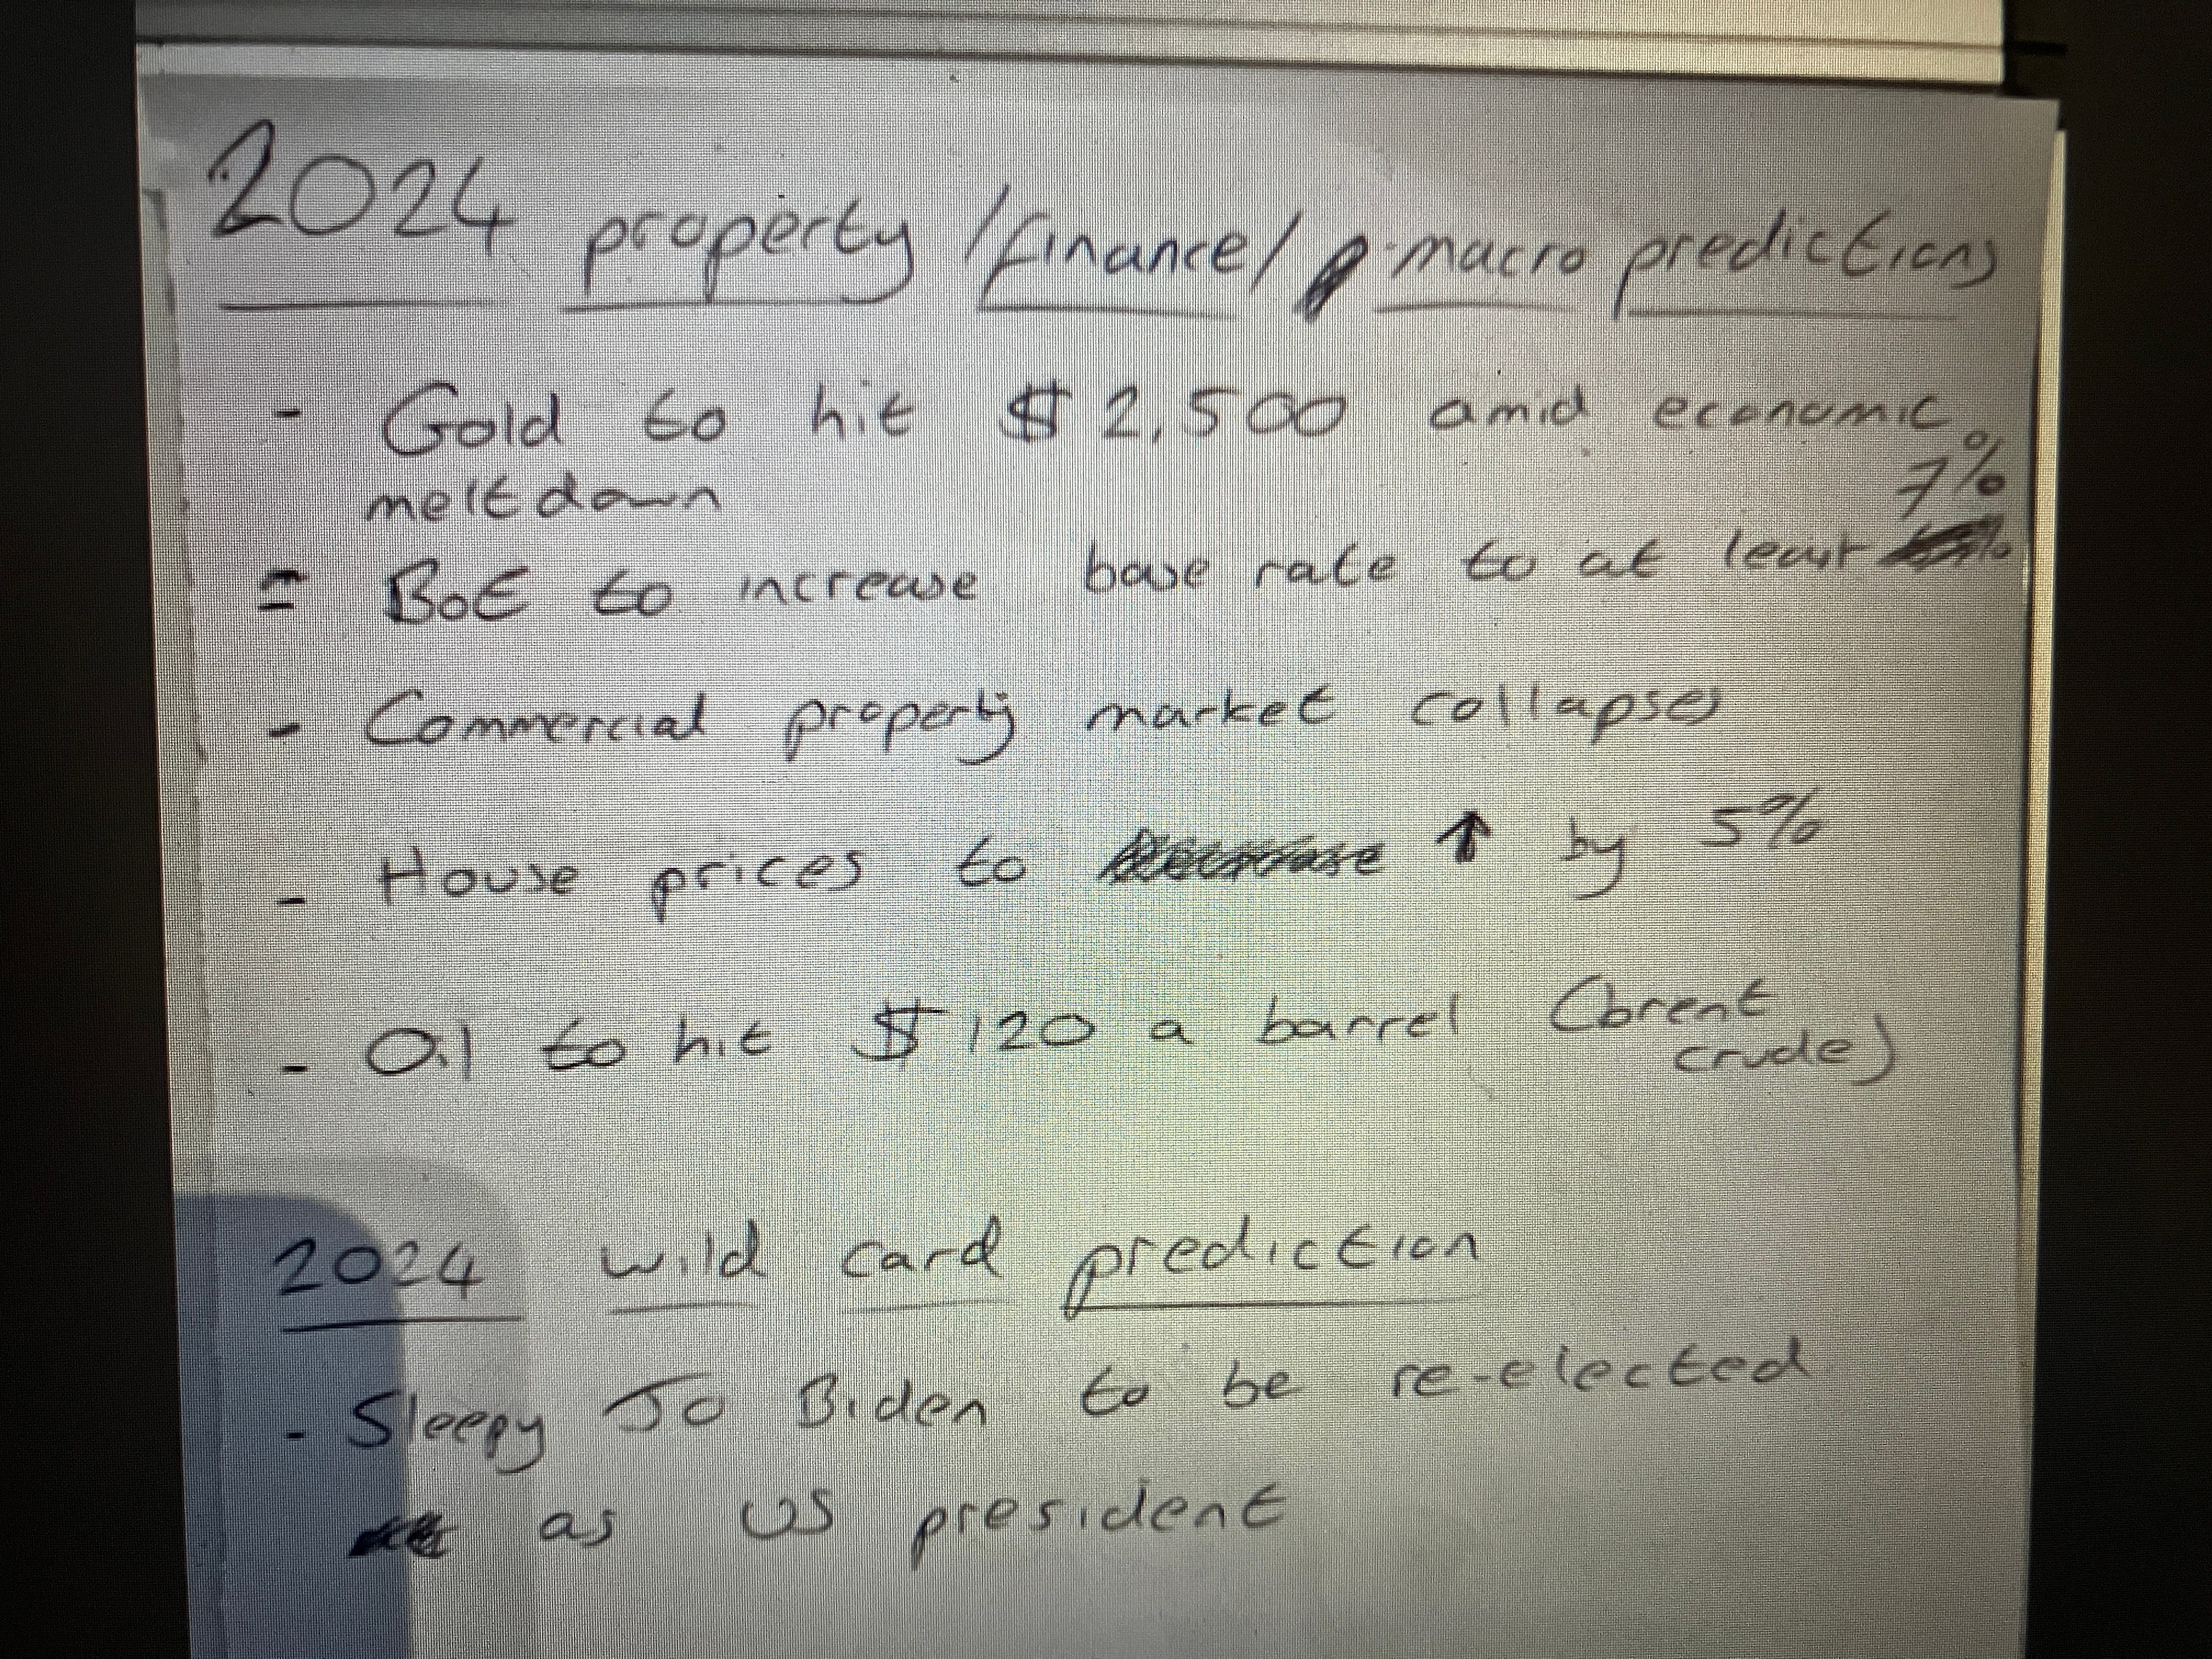 2024 property / finance / macro predictions
- Gold to hit $2,500 amid economic
meltdown
7%
- BoE to increase base rate to at least
- Commercial property market collapses
- House prices to ↑ by 5%
- Oil to hit $120 a barrel (brent
crude)
2024 wild card prediction
- Sleepy Jo Biden to be re-elected
as US president